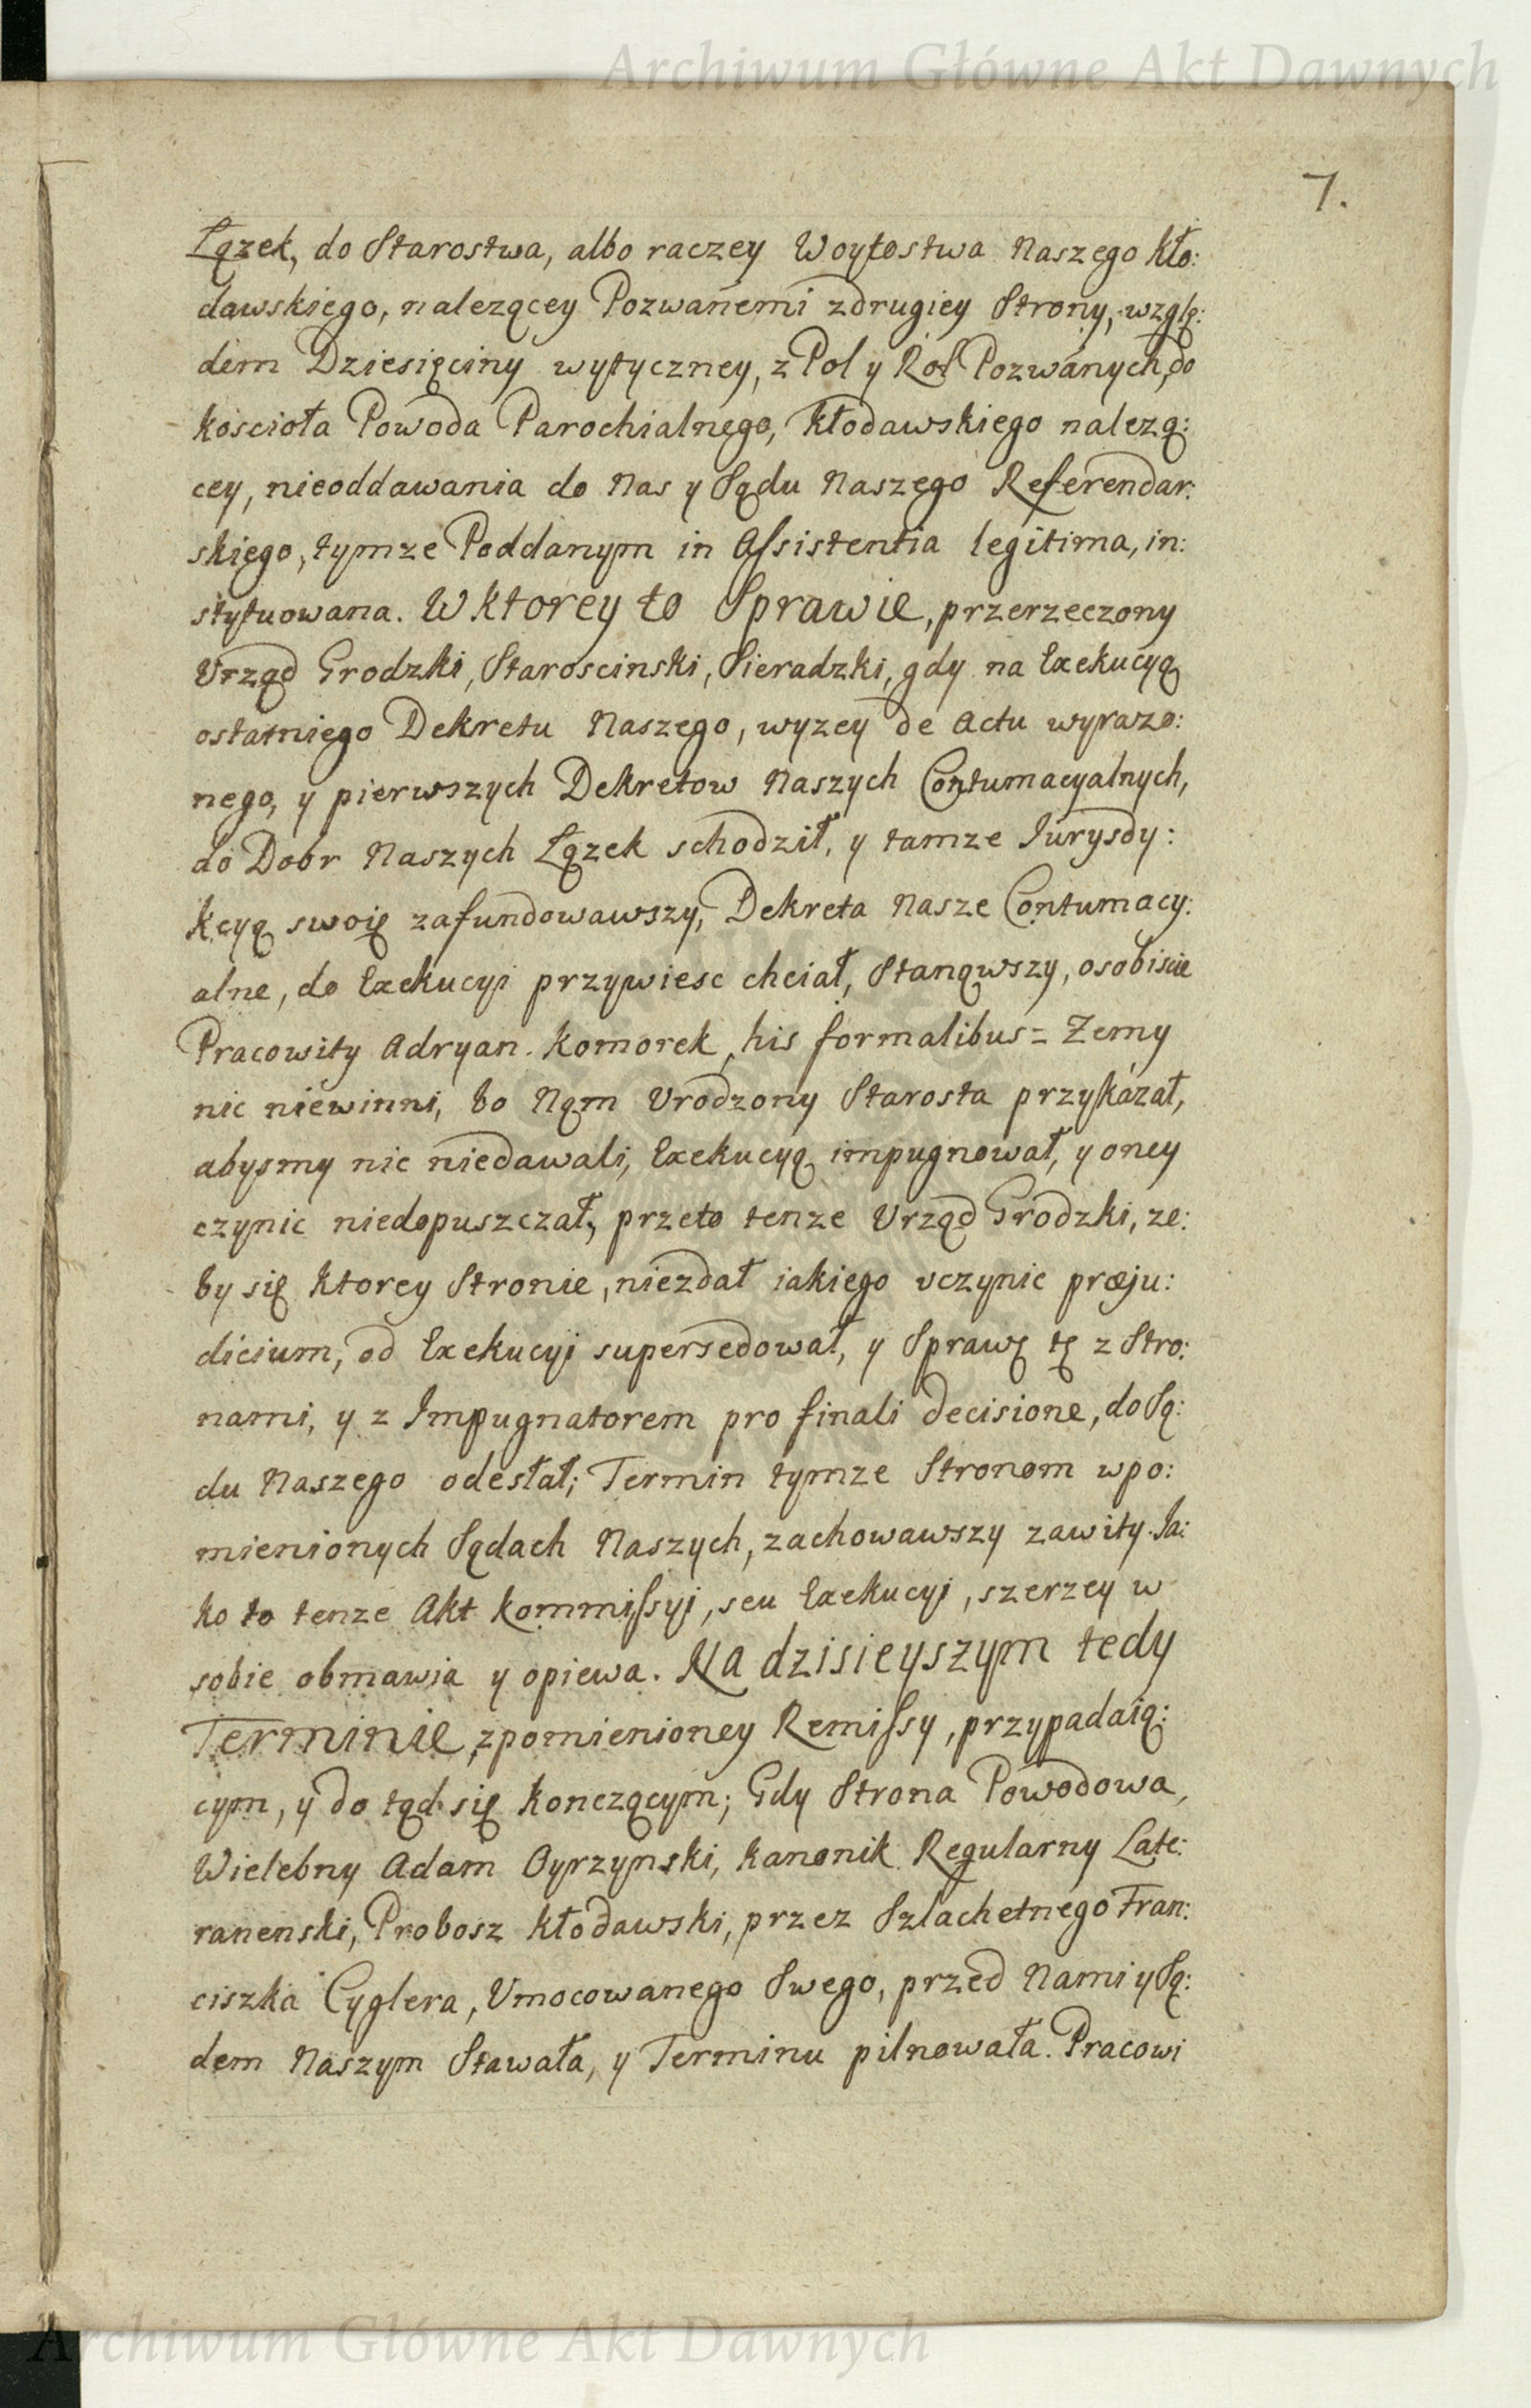 Archiwum Główne Akt Dawnych
7.
Łązek, do Starostwa, albo raczey Woytostwa Naszego Kło:
dawskiego, nalezącey Pozwanemi zdrugiey Strony, wzglę:
dem Dziesięciny wytyczney, z Pol y Rol Pozwanych, do
koscioła Powoda Parochialnego, Kłodawskiego nalezą:
cey, nieoddawania do Nas y Sądu Naszego Referendar:
skiego, tymze Poddanym in Assistentia legitima, in:
stytuowana. W ktorey to Sprawie, przerzeczony
Vrząd Grodzki, Staroscinski, Sieradzki, gdy na Exekucyą
ostatniego Dekretu Naszego, wyzey de Actu wyrazo:
nego, y pierwszych Dekretow Naszych Contumacyalnych,
do Dobr Naszych Łązek schodził, y tamze Jurysdy:
kcyą swoię zafundowawszy, Dekreta Nasze Contumacy:
alne, do Exekucyi przywiesc chciał, Stanąwszy, osobiscie
Pracowity Adryan Komorek, his formalibus = Zemy
nic niewinni, bo Nąm Vrodzony Starosta przykazał,
abysmy nic niedawali, Exekucyą impugnował, y oney
czynic niedopuszczał, przeto tenze Vrząd Grodzki, ze:
by się ktorey Stronie, niezdał iakiego vczynic præju:
dicium, od Exekucyi supersedował, y Sprawę tę z Stro:
nami, y z Impugnatorem pro finali decisione, do Są:
du Naszego odesłał; Termin tymze Stronom wpo:
mienionych Sądach Naszych, zachowawszy zawity. Ja:
ko to tenze Akt Kommissyi, seu Exekucyi, szerzey w
sobie obmawia y opiewa. Na dzisieyszym tedy
Terminie, zpomienioney Remissy, przypadaią:
cym, y do tąd się konczącym; Gdy Strona Powodowa,
Wielebny Adam Oyrzynski, Kanonik Regularny Late:
ranenski, Probosz Kłodawski, przez Szlachetnego Fran:
ciszka Cyglera, Vmocowanego Swego, przed Nami y Są:
dem Naszym Stawała, y Terminu pilnowała. Pracowi
Archiwum Główne Akt Dawnych